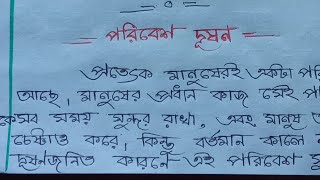 পরিবেশ দূষন
প্রত্যেক মানুষেরই একটা
আছে, মানুষের প্রধান কাজ সেই
সব সময় সুন্দর রাখা, এবং মানুষ
চেষ্টাও করে, কিন্তু বর্তমান কালে
দূষণজনিত কারনে এই পরিবেশ